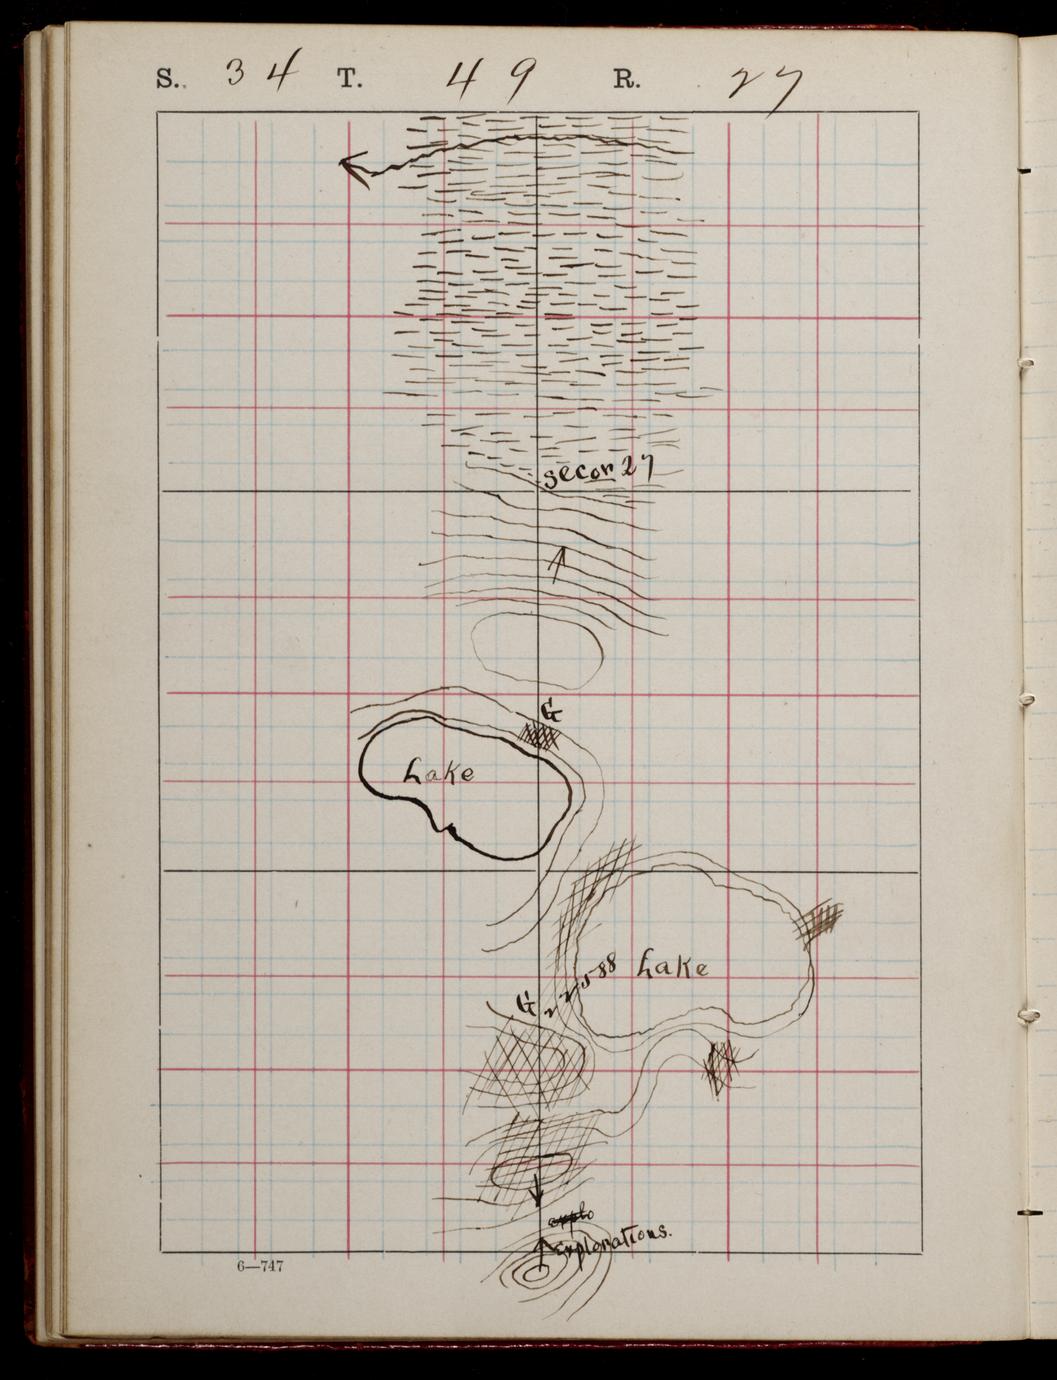 S. 34 T. 49 R. 27
secor 27
G
Lake
22588 Lake
G
explo
explorations.
6—747